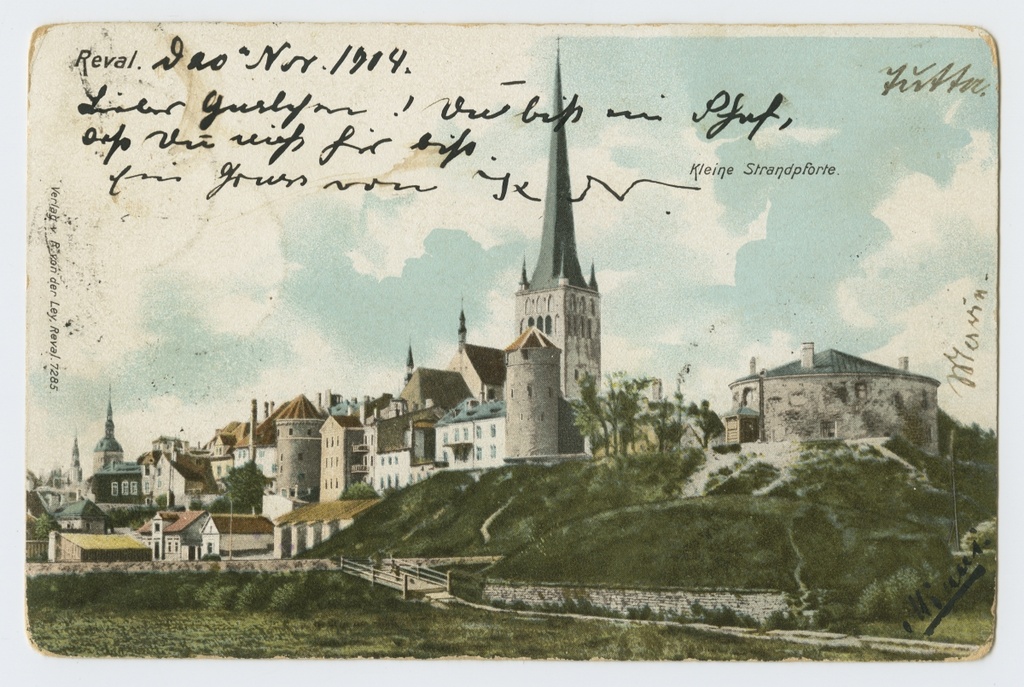 Reval. d 20 Nov. 1904.
Lieber Gustchen! Du bist ein Schaf,
daß Du nicht hier bist.
Ein Gruss von
Jutta.
Kleine Strandpforte.
Verlag v. R. von der Ley, Reval. 7285